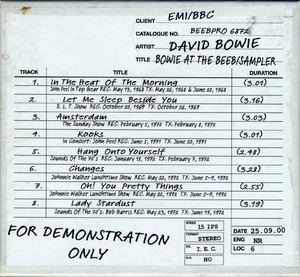 CLIENT EMI/BBC
CATALOGUE NO. BEEBPRO 6872
ARTIST DAVID BOWIE
TITLE BOWIE AT THE BEEB/SAMPLER
TRACK TITLE DURATION
1. In The Heat Of The Morning (3.01)
John Peel In Top Gear REC: May 13, 1968 TX: May 26, 1968 & June 30, 1968
2. Let Me Sleep Beside You (3.16)
D.L.T. Show REC: October 20, 1969 TX: October 26, 1969
3. Amsterdam (3.03)
The Sunday Show REC: February 5, 1970 TX: February 8, 1970
4. Kooks (3.01)
In Concert: John Peel REC: June 3, 1971 TX: June 20, 1971
5. Hang Onto Yourself (2.48)
Sounds Of The 70's REC: January 18, 1972 TX: February 7, 1972
6. Changes (3.28)
Johnnie Walker Lunchtime Show REC: May 22, 1972 TX: June 5-9, 1972
7. Oh! You Pretty Things (2.55)
Johnnie Walker Lunchtime Show REC: May 22, 1972 TX: June 5-9, 1972
8. Lady Stardust (3.19)
Sounds Of The 70's: Bob Harris REC: May 23, 1972 TX: June 19, 1972
FOR DEMONSTRATION
ONLY
SPEED 15 IPS
STEREO
I.E.C.
NO
DATE 25.09.00
ENG NR
LOC 6